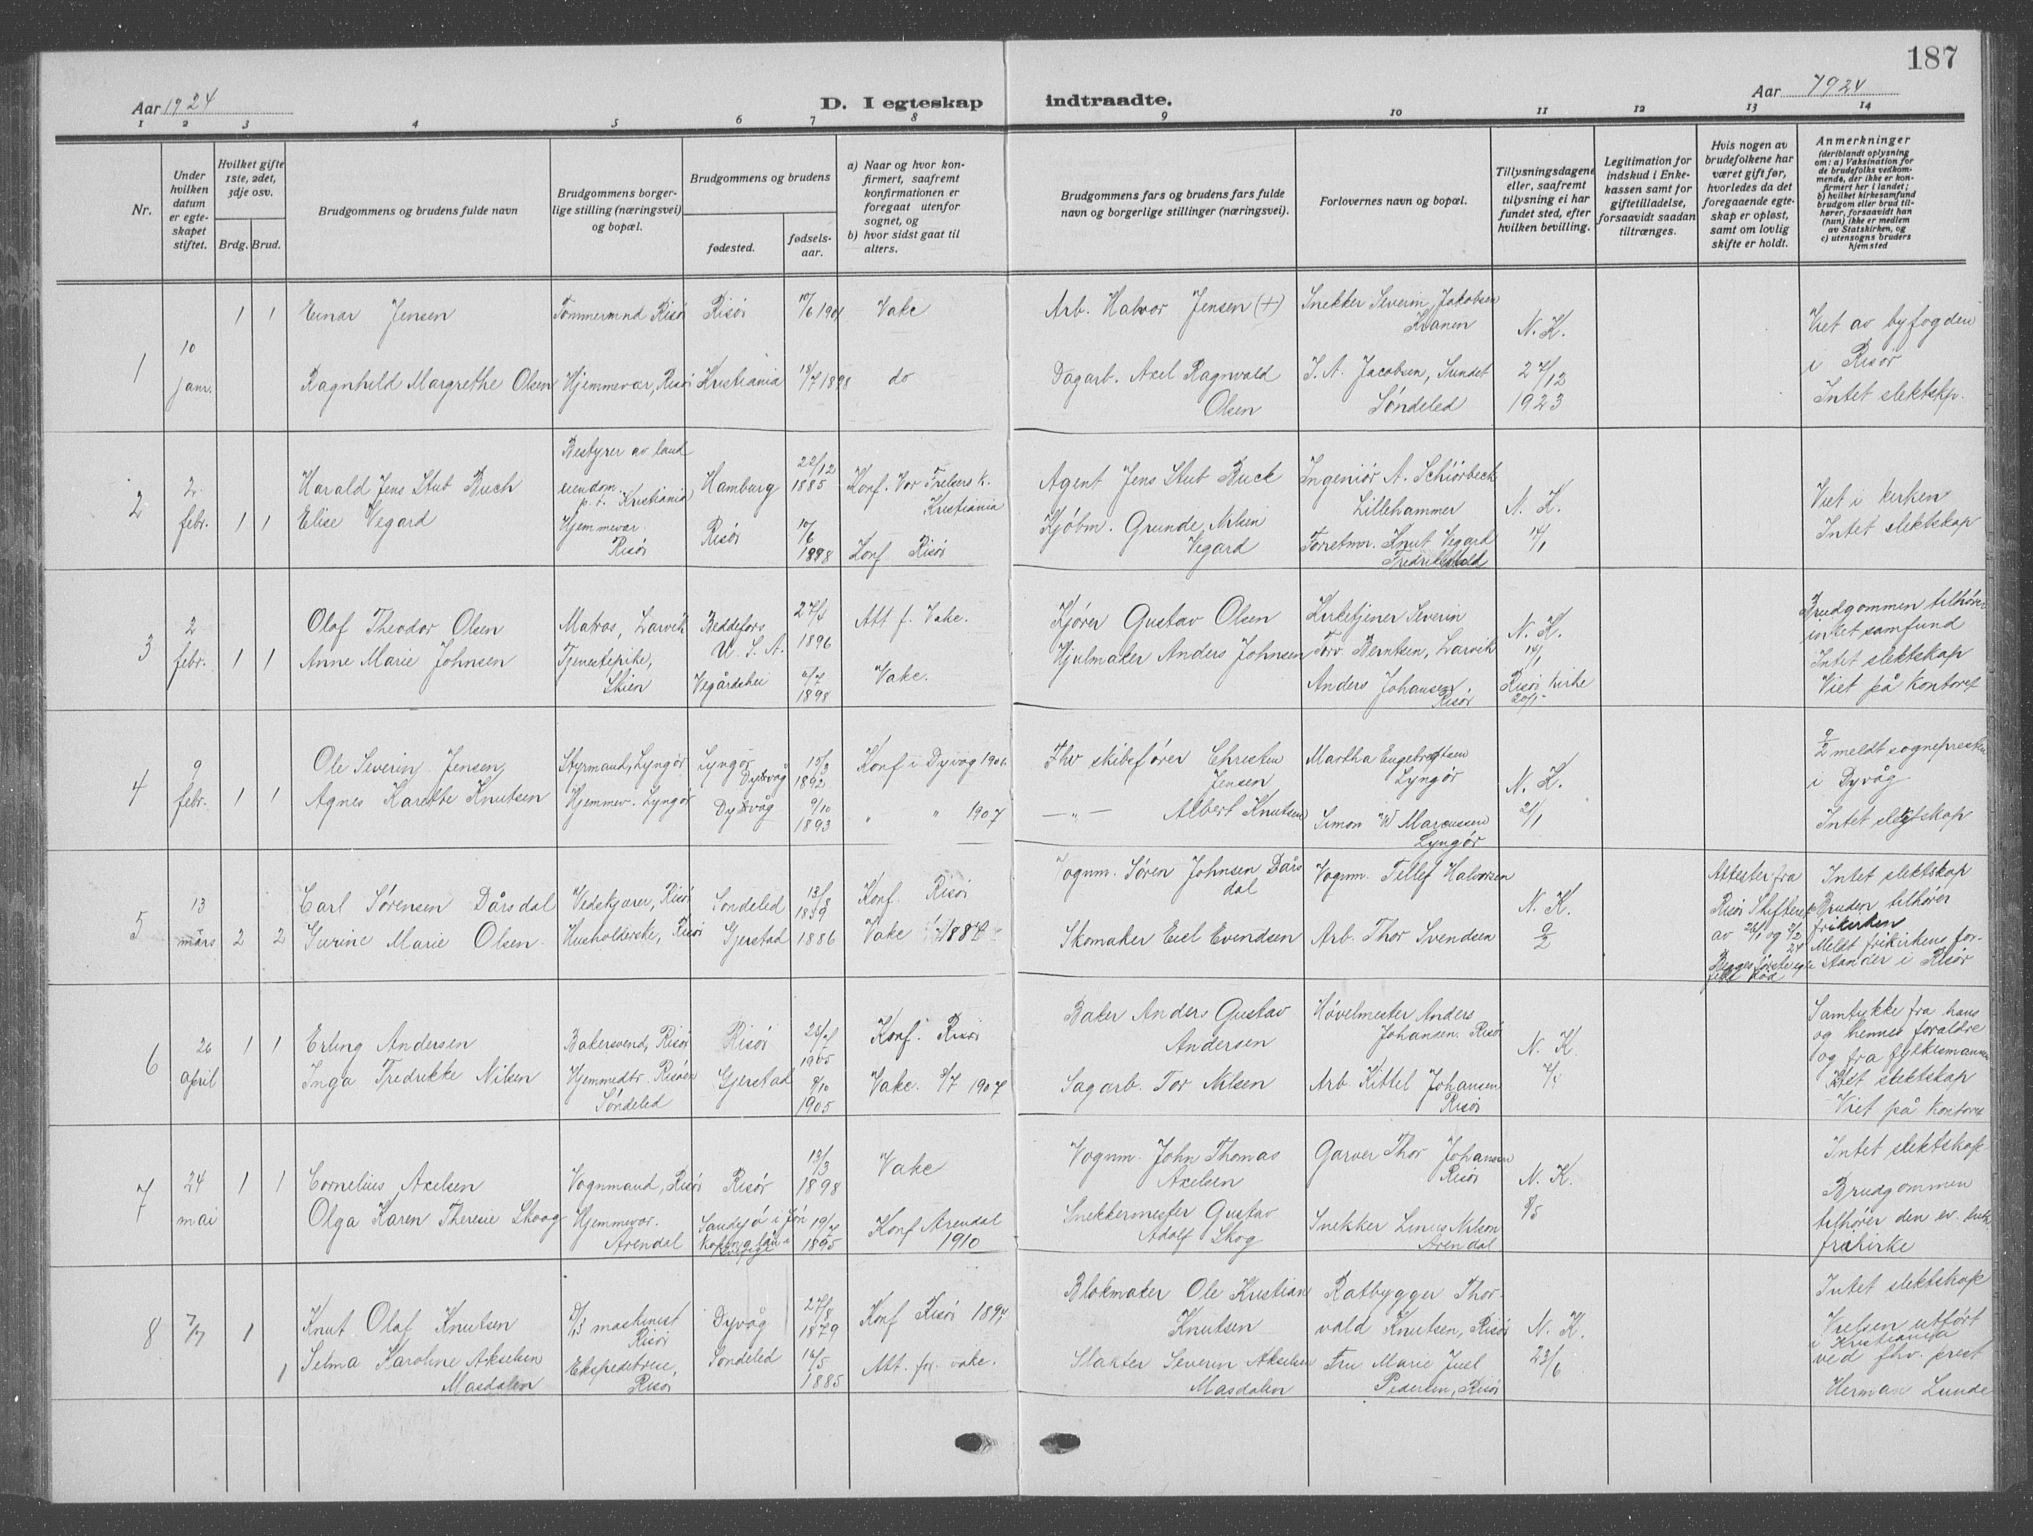 187
Aar 1924
D. I egteskap indtraadte.
Aar 1924
1 2 3 4 5 6 7 8 9 10 11 12 13 14
Nr.
Under hvilken datum er egteskapet stiftet.
Hvilket gifte 1ste, 2det, 3dje osv.
Brdg. Brud.
Brudgommens og brudens fulde navn
Brudgommens borgerlige stilling (næringsvei) og bopæl.
Brudgommens og brudens
fødested.
fødselsaar.
a) Naar og hvor konfirmert, saafremt konfirmationen er foregaat utenfor sognet, og
b) hvor sidst gaat til alters.
Brudgommens fars og brudens fars fulde navn og borgerlige stillinger (næringsvei).
Forlovernes navn og bopæl.
Tillysningsdagene eller, saafremt tillysning ei har fundet sted, efter hvilken bevilling.
Legitimation for indskud i Enkekassen samt for giftetilladelse, forsaavidt saadan tiltrænges.
Hvis nogen av brudefolkene har været gift før, hvorledes da det foregaaende egteskap er opløst, samt om lovlig skifte er holdt.
Anmerkninger
(deriblandt oplysning om: a) Vaksination for de brudefolks vedkommende, der ikke er konfirmert her i landet; b) hvilket kirkesamfund brudgom eller brud tilhører, forsaavidt han (hun) ikke er medlem av Statskirken, og c) utensogns bruders hjemsted
1
10 janr.
1 1
Einar Jensen
Tømmermnd Risør
Risør
10/6 1901
Vake
Arb. Halvor Jensen (+)
Snekker Severin Jakobsen Kranen
N. K.
Viet av byfogden i Risør
Ragnhild Margrethe Olsen
Hjemmevær, Risør
Kristiania
18/7 1898
do
Dagarb. Axel Ragnvald Olsen
J. A. Jacobsen, Sundet Søndeled
27/12 1923
Intet slektskp.
2
2 febr.
1 1
Harald Jens Stub Buch
Bestyrer av landeiendom p. t. Kristiania
Hamburg
22/12 1885
Konf. Vor Frelsers K. Kristiania
Agent Jens Stub Buck
Ingeniør A. Schiørbeck Lillehammer
N. K.
Viet i kirken
Elise Vegard
Hjemmevær. Risør
Risør
10/6 1898
Konf Risør
Kjøbm. Grunde Nilsen Vegard
Forretmr. Knut Vegard Fredrikshald
14/1
Intet slektskap
3
2 febr.
1 1
Olaf Theodor Olsen
Matros, Larvik
Beddefors U. S. A.
1896
Att f. Vake.
Kjører Gustav Olsen
Kirketjener Severin Torv Berntsen, Larvik
N. K.
Brudgommen tilhører intet samfund
Anne Marie Johnsen
Tjenestepike, Skien
Vegårdshei
1898
Vake.
Hjulmaker Anders Johnsen
Anders Johansen Risør
Risør Kirke 20/1
Intet slektskap
Viet på kontoret
4
9 febr.
1 1
Ole Severin Jensen
Styrmand, Lyngør
Lyngør Dybvåg
15/3 1892
Konf i Dyvåg 1906
Fhv skibsfører Christen Jensen
Martha Engebretsen Lyngør
N. K.
9/2 meldt sognepresten i Dyvåg
Agnes Karethe Knutsen
Hjemmev. Lyngør
Dybvåg
9/10 1893
" " 1907
— " — Albert Knutsen
Simon W Marcussen Lyngør
21/1
Intet slegtskap
5
13 mars
2 2
Carl Sørensen Dårsdal
Vedskjærer, Risør
Søndeled
13/8 1859
Konf Risør
Vognm. Søren Johnsen Dårsdal
Vognm. Tellef Halvorsen
N. K.
Attester fra Risør Skifteret av 26/1 og 2/2 24
Intet slektskap
Bruden tilhører frikirken
Gurine Marie Olsen
Husholderske, Risør
Gjerstad
1886
Vake
Skomaker Eiel Evendsen
Arb. Thor Svendsen
9/2
Begges første egtefelle død
Meldt frikirkens forstander i Risør
6
26 april
1 1
Erling Andersen
Bakersvend, Risør
Risør
1905
Konf. Risør
Baker Anders Gustav Andersen
Høvelmester Anders Johansen. Risør
N. K.
Samtykke fra hans og hennes foreldre og fra fylkesmannen
Inga Fredrikke Nilsen
Hjemmedtr. Risøen Søndeled
Gjerstad
9/10 1905
Vake. 9/7 1907
Sagarb. Tor Nilsen
Arb. Kittel Johansen Risør
Intet slektskap
Viet på kontoret
7
24 mai
1 1
Cornelius Axelsen
Vognmand, Risør
Risør
13/3 1898
Vake
Vognm. John Thomas Axelsen
Garver Thor Johansen Risør
N. K.
Intet slektskap
Olga Karen Theresie Skoog
Hjemmevær. Arendal
1895
Konf Arendal 1910
Snekkermester Gustav Adolf Skog
Snekker Linus Nilson Arendal
8/5
Brudgommen tilhører den ev. luth frikirke
8
7/7
1
Knut Olaf Knutsen
D/S maskinist Risør
Dyvåg
27/8 1879
Konf Risør 1894
Blokmaker Ole Kristian Knutsen
Ratbygger Thorvald Knutsen, Risør
N. K.
Intet slektskap
Vielsen utført i Kristiania
1
Selma Karoline Akselsen Masdalen
Ekspeditrise, Risør
Søndeled
16/5 1885
Att. for vake.
Slakter Severin Akselsen Masdalen
Fru Marie Juel Pedersen, Risør
23/6
ved fhv. prest Herman Lunde